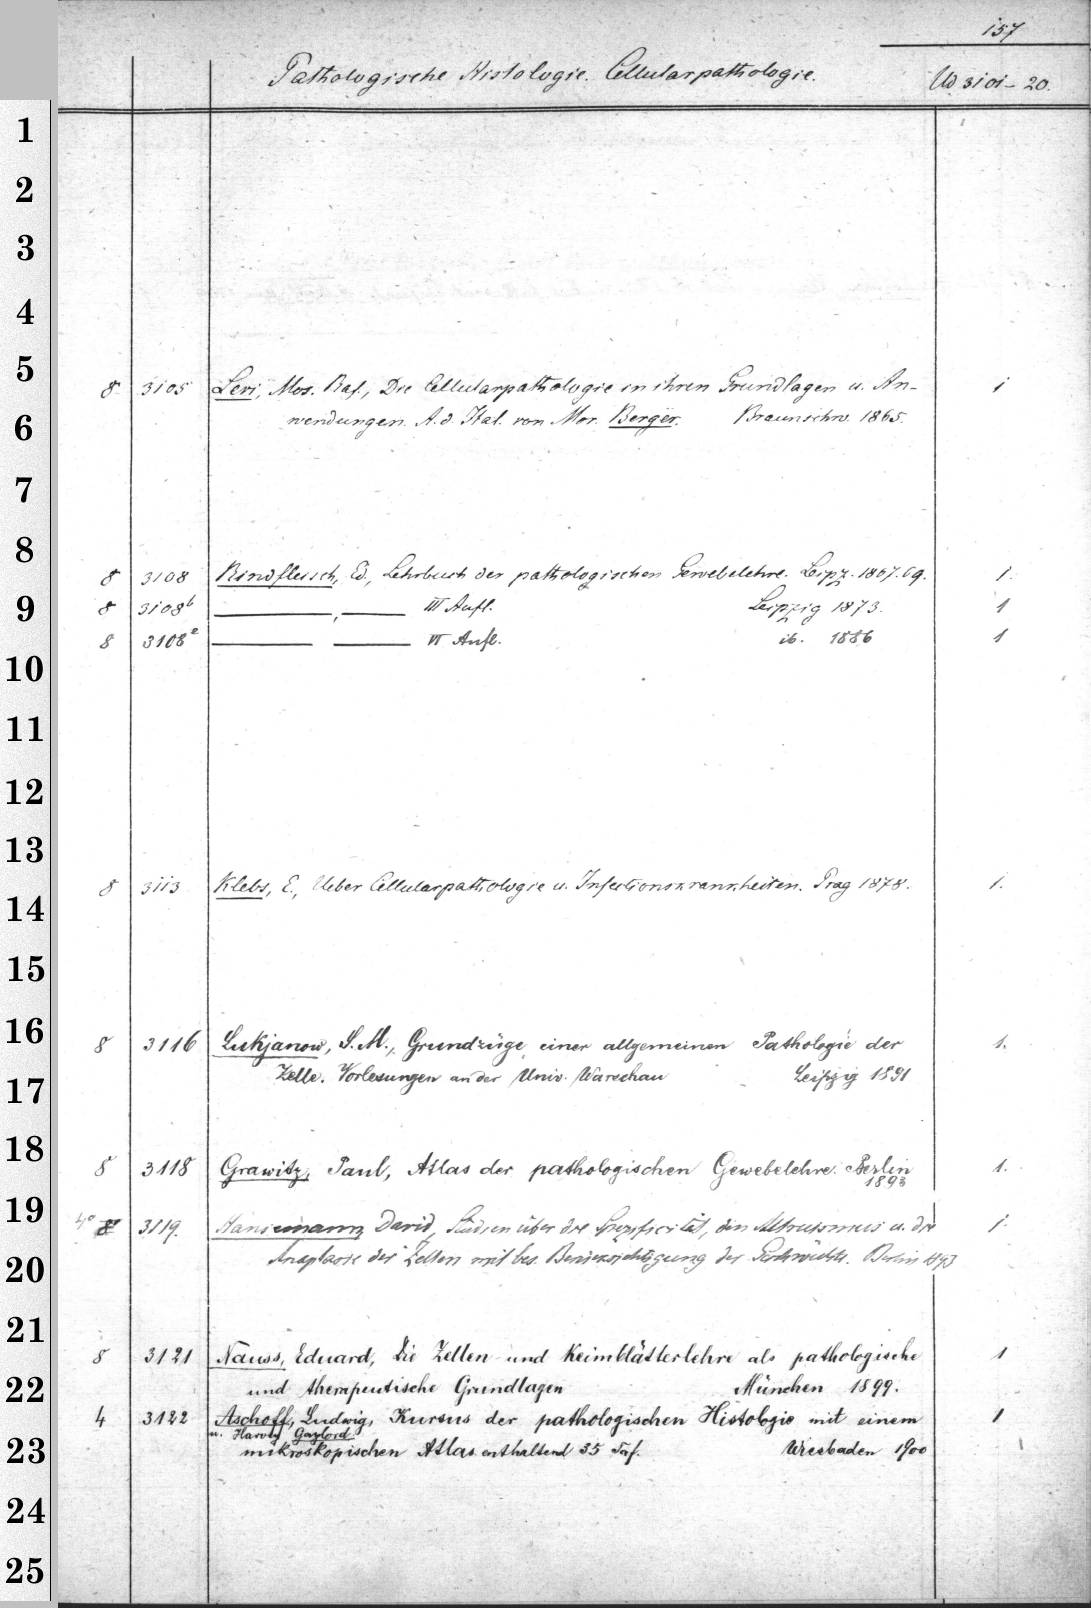 157
Pathologische Histologie. Cellularpathologie. Ud 3101-20.
1
2
3
4
5
8 3105 Levi, Mos. Raf., Die Cellularpathologie in ihren Grundlagen u. An- 1
6 wendungen. A. d. Ital. von Mor. Berger. Braunschw. 1865.
7
8
8 3108 Rindfleisch, Ed., Lehrbuch der pathologischen Gewebelehre. Leipz. 1867.69. 1.
9 8 3108b ——, —— III Aufl. Leipzig 1873. 1
8 3108e —— —— VI Aufl. ib. 1886 1
10
11
12
13
8 3113 Klebs, E., Ueber Cellularpathologie u. Infectionskrankheiten. Prag 1878. 1.
14
15
16
8 3116 Lukjanow, S. M., Grundzüge einer allgemeinen Pathologie der 1.
17 Zelle. Vorlesungen an der Univ. Warschau Leipzig 1891
18
8 3118 Grawitz, Paul, Atlas der pathologischen Gewebelehre. Berlin 1.
1893
19
4° 8 3119. Hansemann, David, Studien über die Spezificität, den Altruismus u. die 1.
20 Anaplasie der Zellen mit bes. Berücksichtigung der Geschwülste. Berlin 1893
21
8 3121 Nauss, Eduard, Die Zellen- und Keimblätterlehre als pathologische 1
22 und therapeutische Grundlagen München 1899.
4 3122 Aschoff, Ludwig, Kursus der pathologischen Histologie mit einem 1
u. Harvey Gaylord
23 mikroskopischen Atlas enthaltend 35 Taf. Wiesbaden 1900
24
25